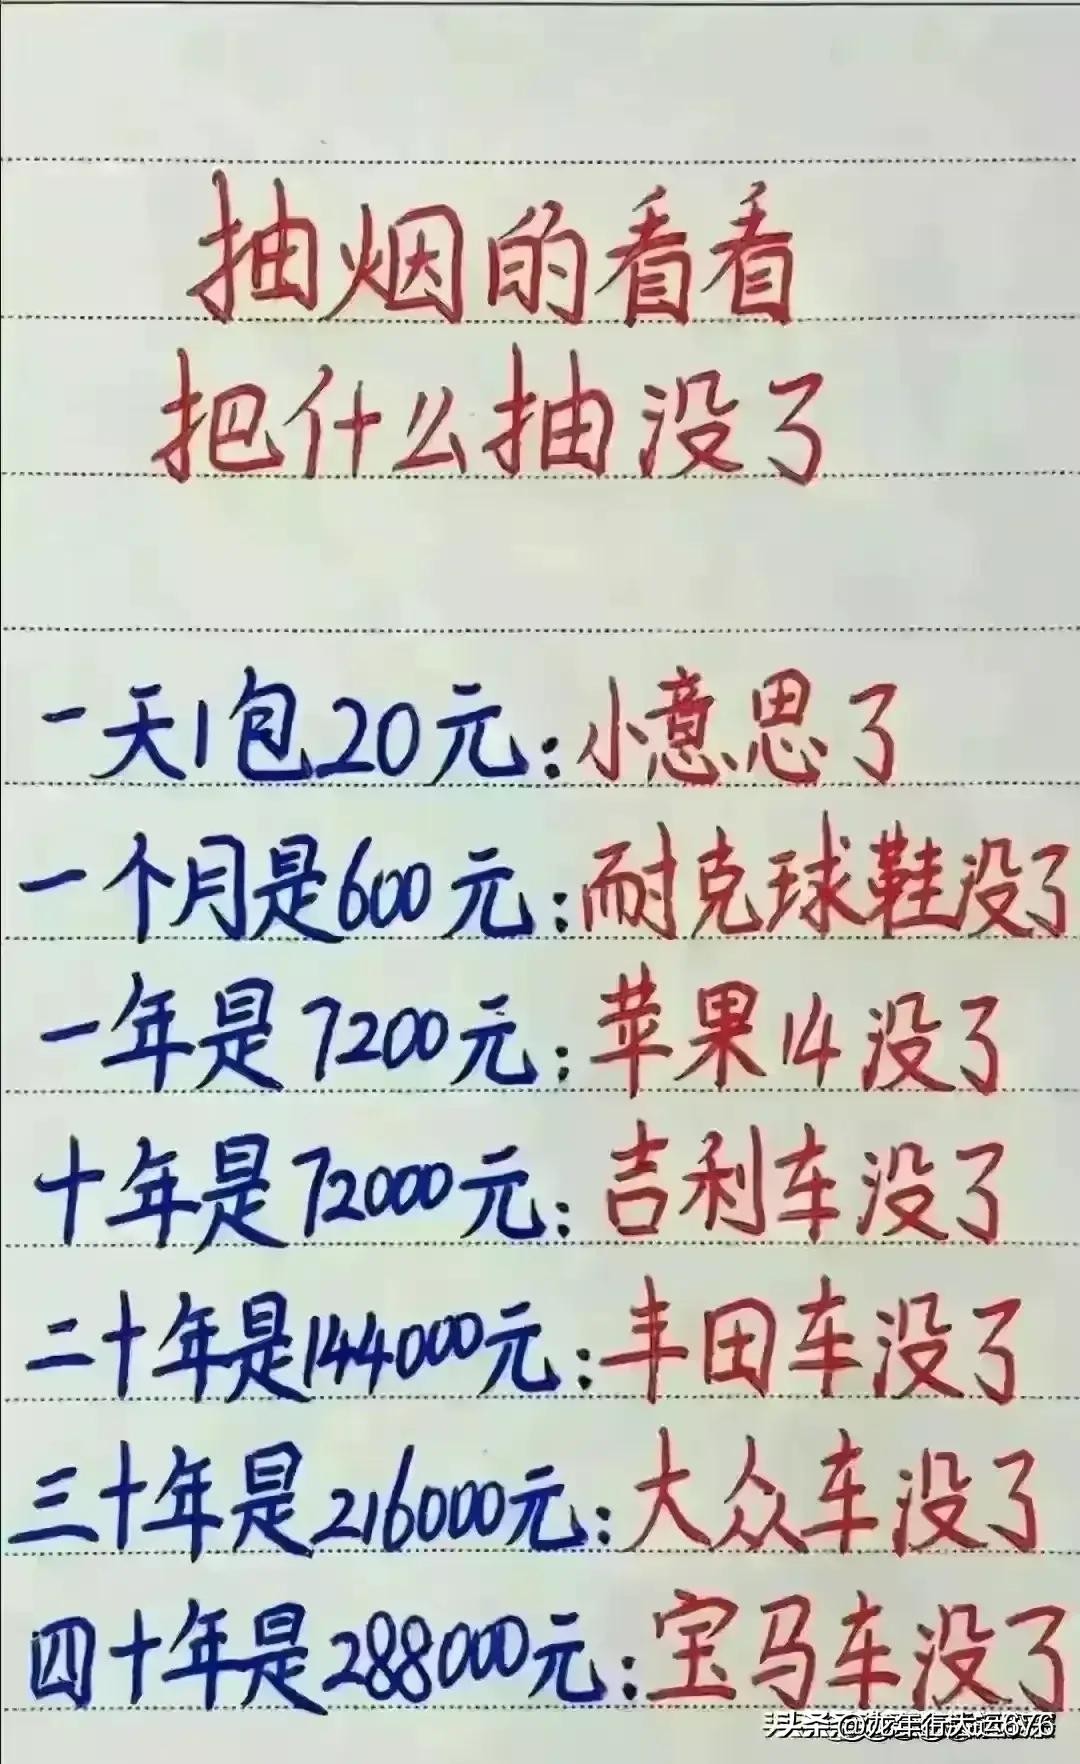 抽烟的看看
把什么抽没了
一天1包20元:小意思了
一个月是600元:耐克球鞋没了
一年是7200元:苹果14没了
十年是72000元:吉利车没了
二十年是144000元:丰田车没了
三十年是216000元:大众车没了
四十年是288000元:宝马车没了
头条@龙年行大运676